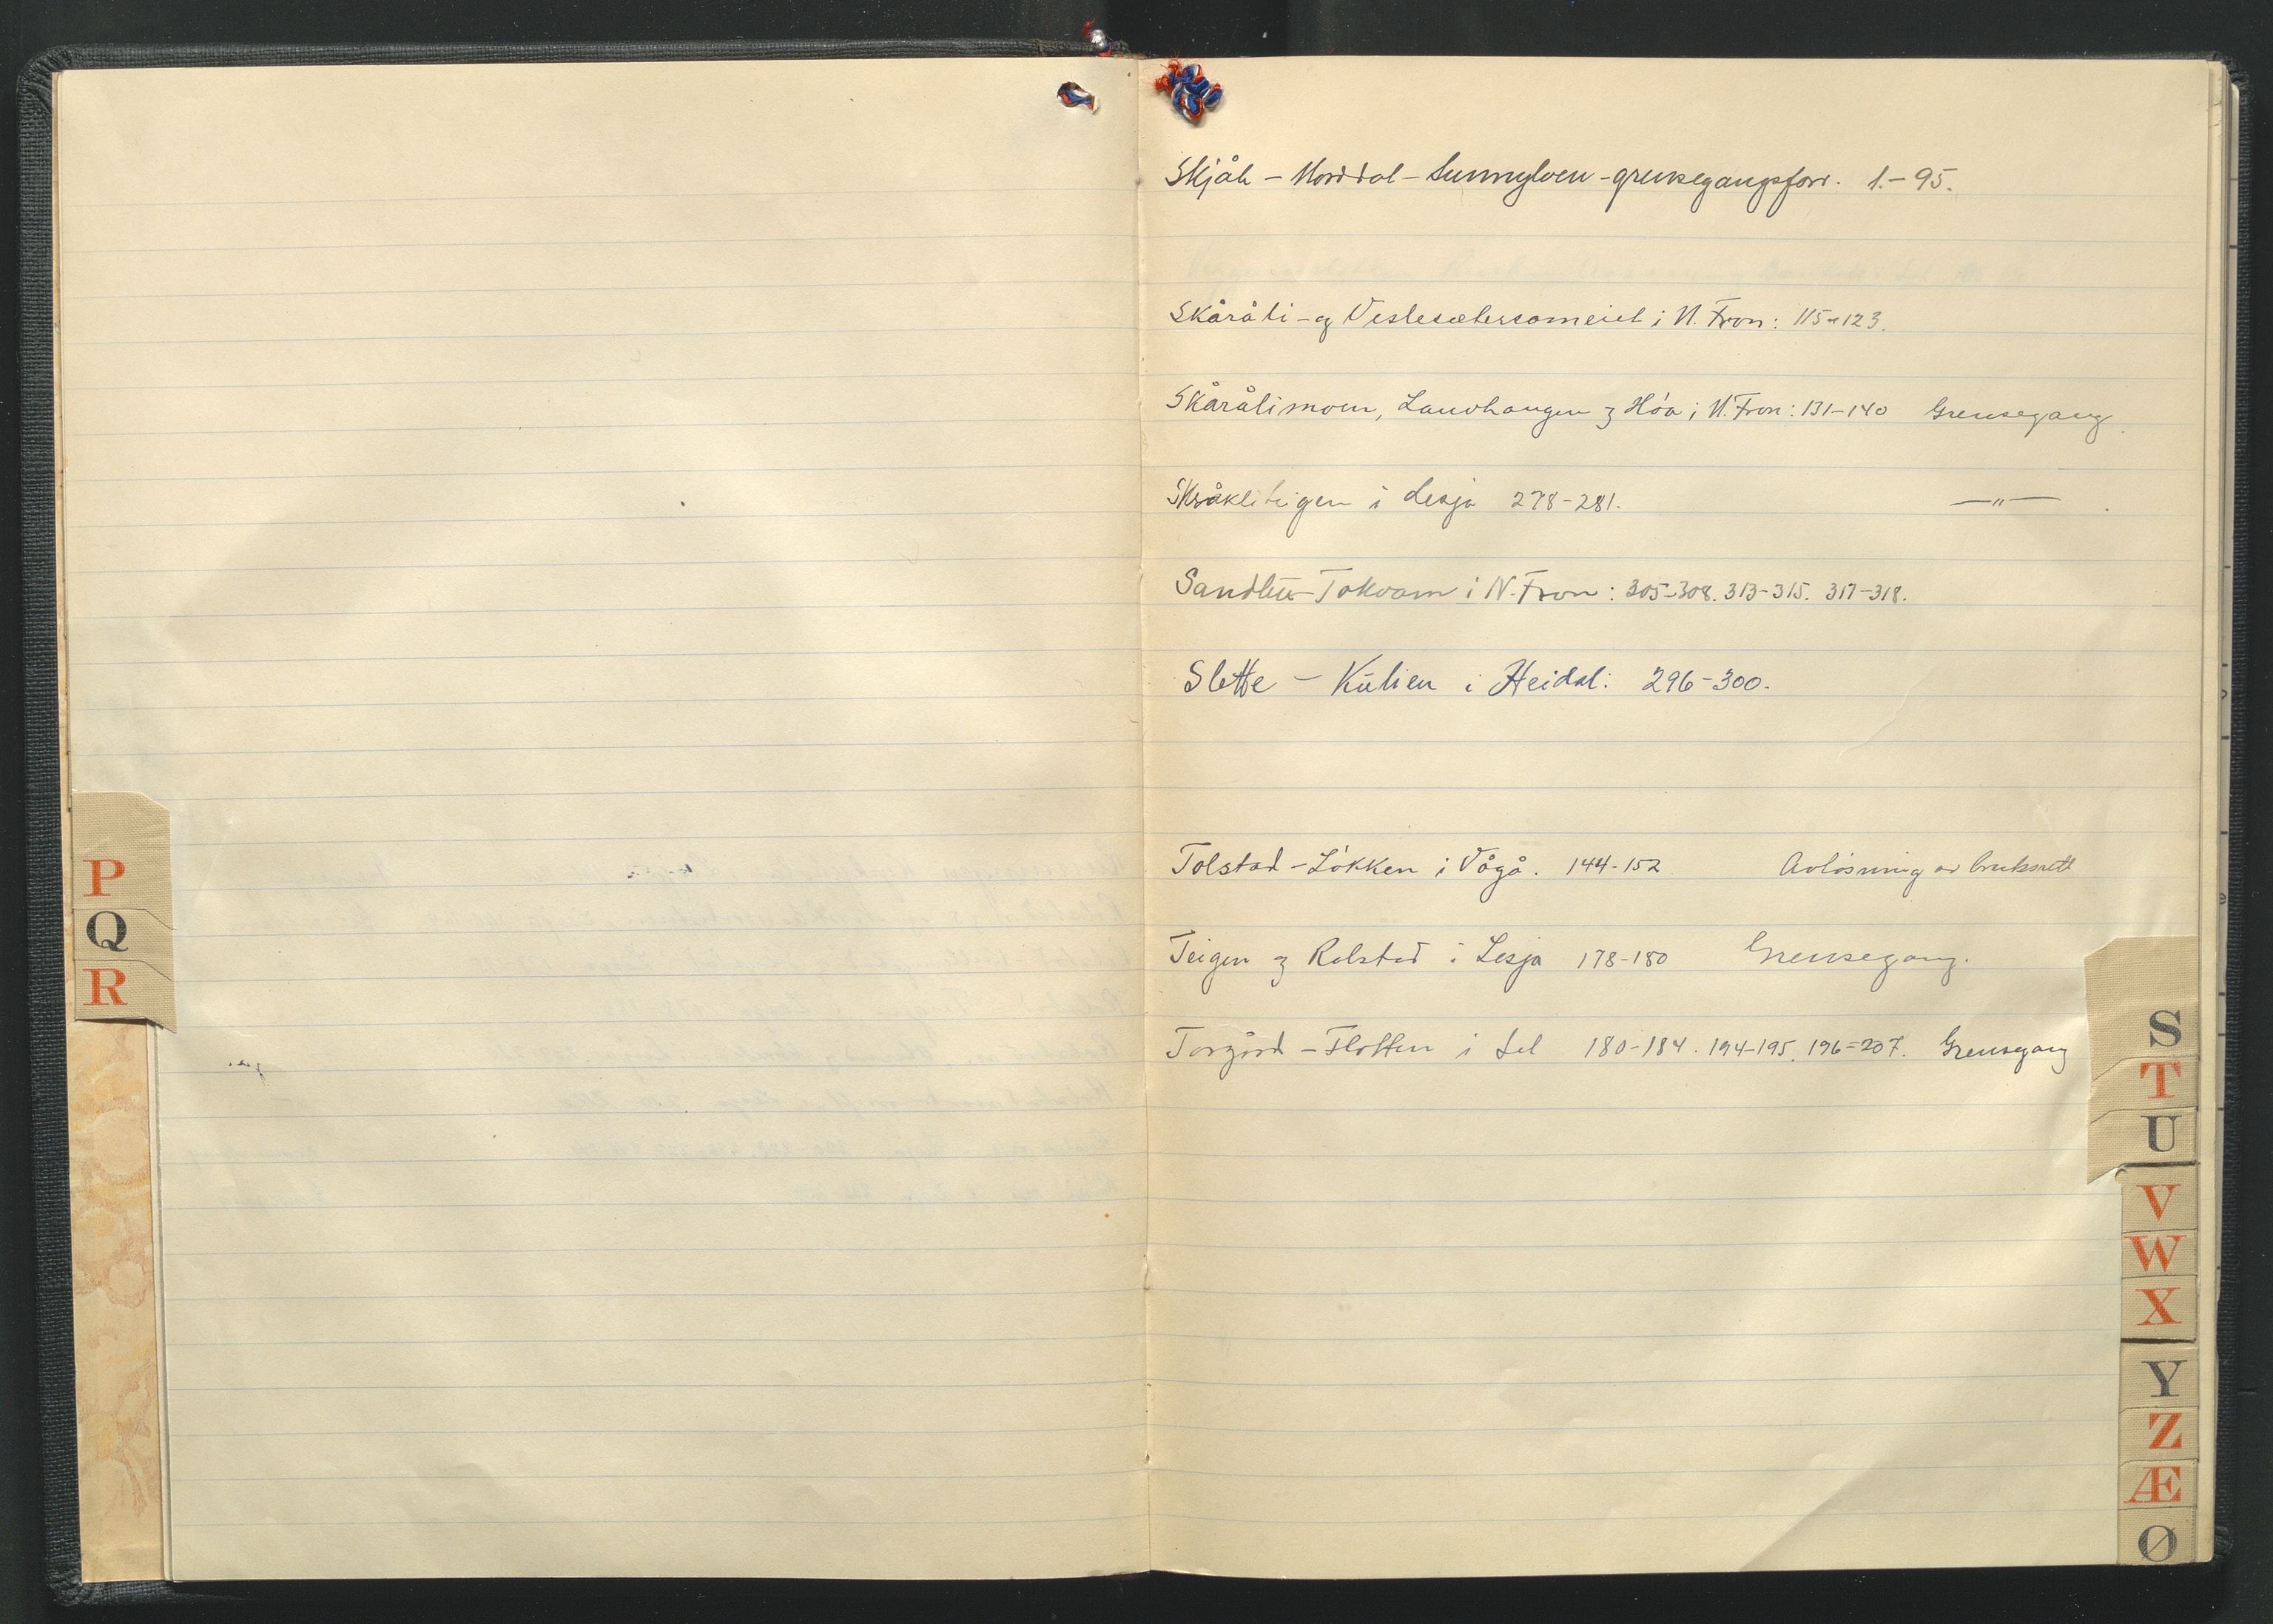 Skjåk – Norddal – Sunnylven – grensegangsforr. 1. – 95.
Skåråli – og Veslesætersameiet i N. Fron: 115–123.
Skårålimoen, Lauvhaugen og Höa i N. Fron: 131–140 Grensegang
Skråkliteigen i Lesja 278–281. —"—
Sandbu – Tokvam i N. Fron: 305–308. 313–315. 317–318.
Slette – Kulien i Heidal: 296–300.
Tolstad – Lökken i Vågå. 144–152 Avlösning av bruksrett
Teigen og Rolstad i Lesja 178–180 Grensegang.
Torgård – Flotten i Sel 180–184. 194–195. 196–207. Grensegang
P
Q
R
S
T
U
V
W
X
Y
Z
Æ
Ø